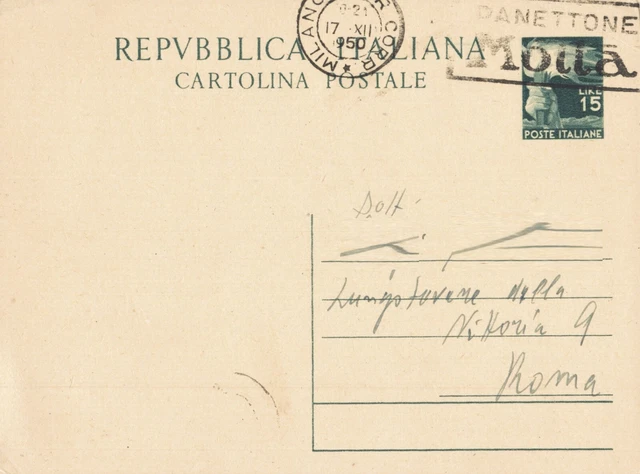 MILANO CORR.
19-21
17 XII
1950
PANETTONE
Motta
REPVBBLICA ITALIANA
CARTOLINA POSTALE
LIRE
15
POSTE ITALIANE
Dott.
Lungotevere della
Vittoria 9
Roma